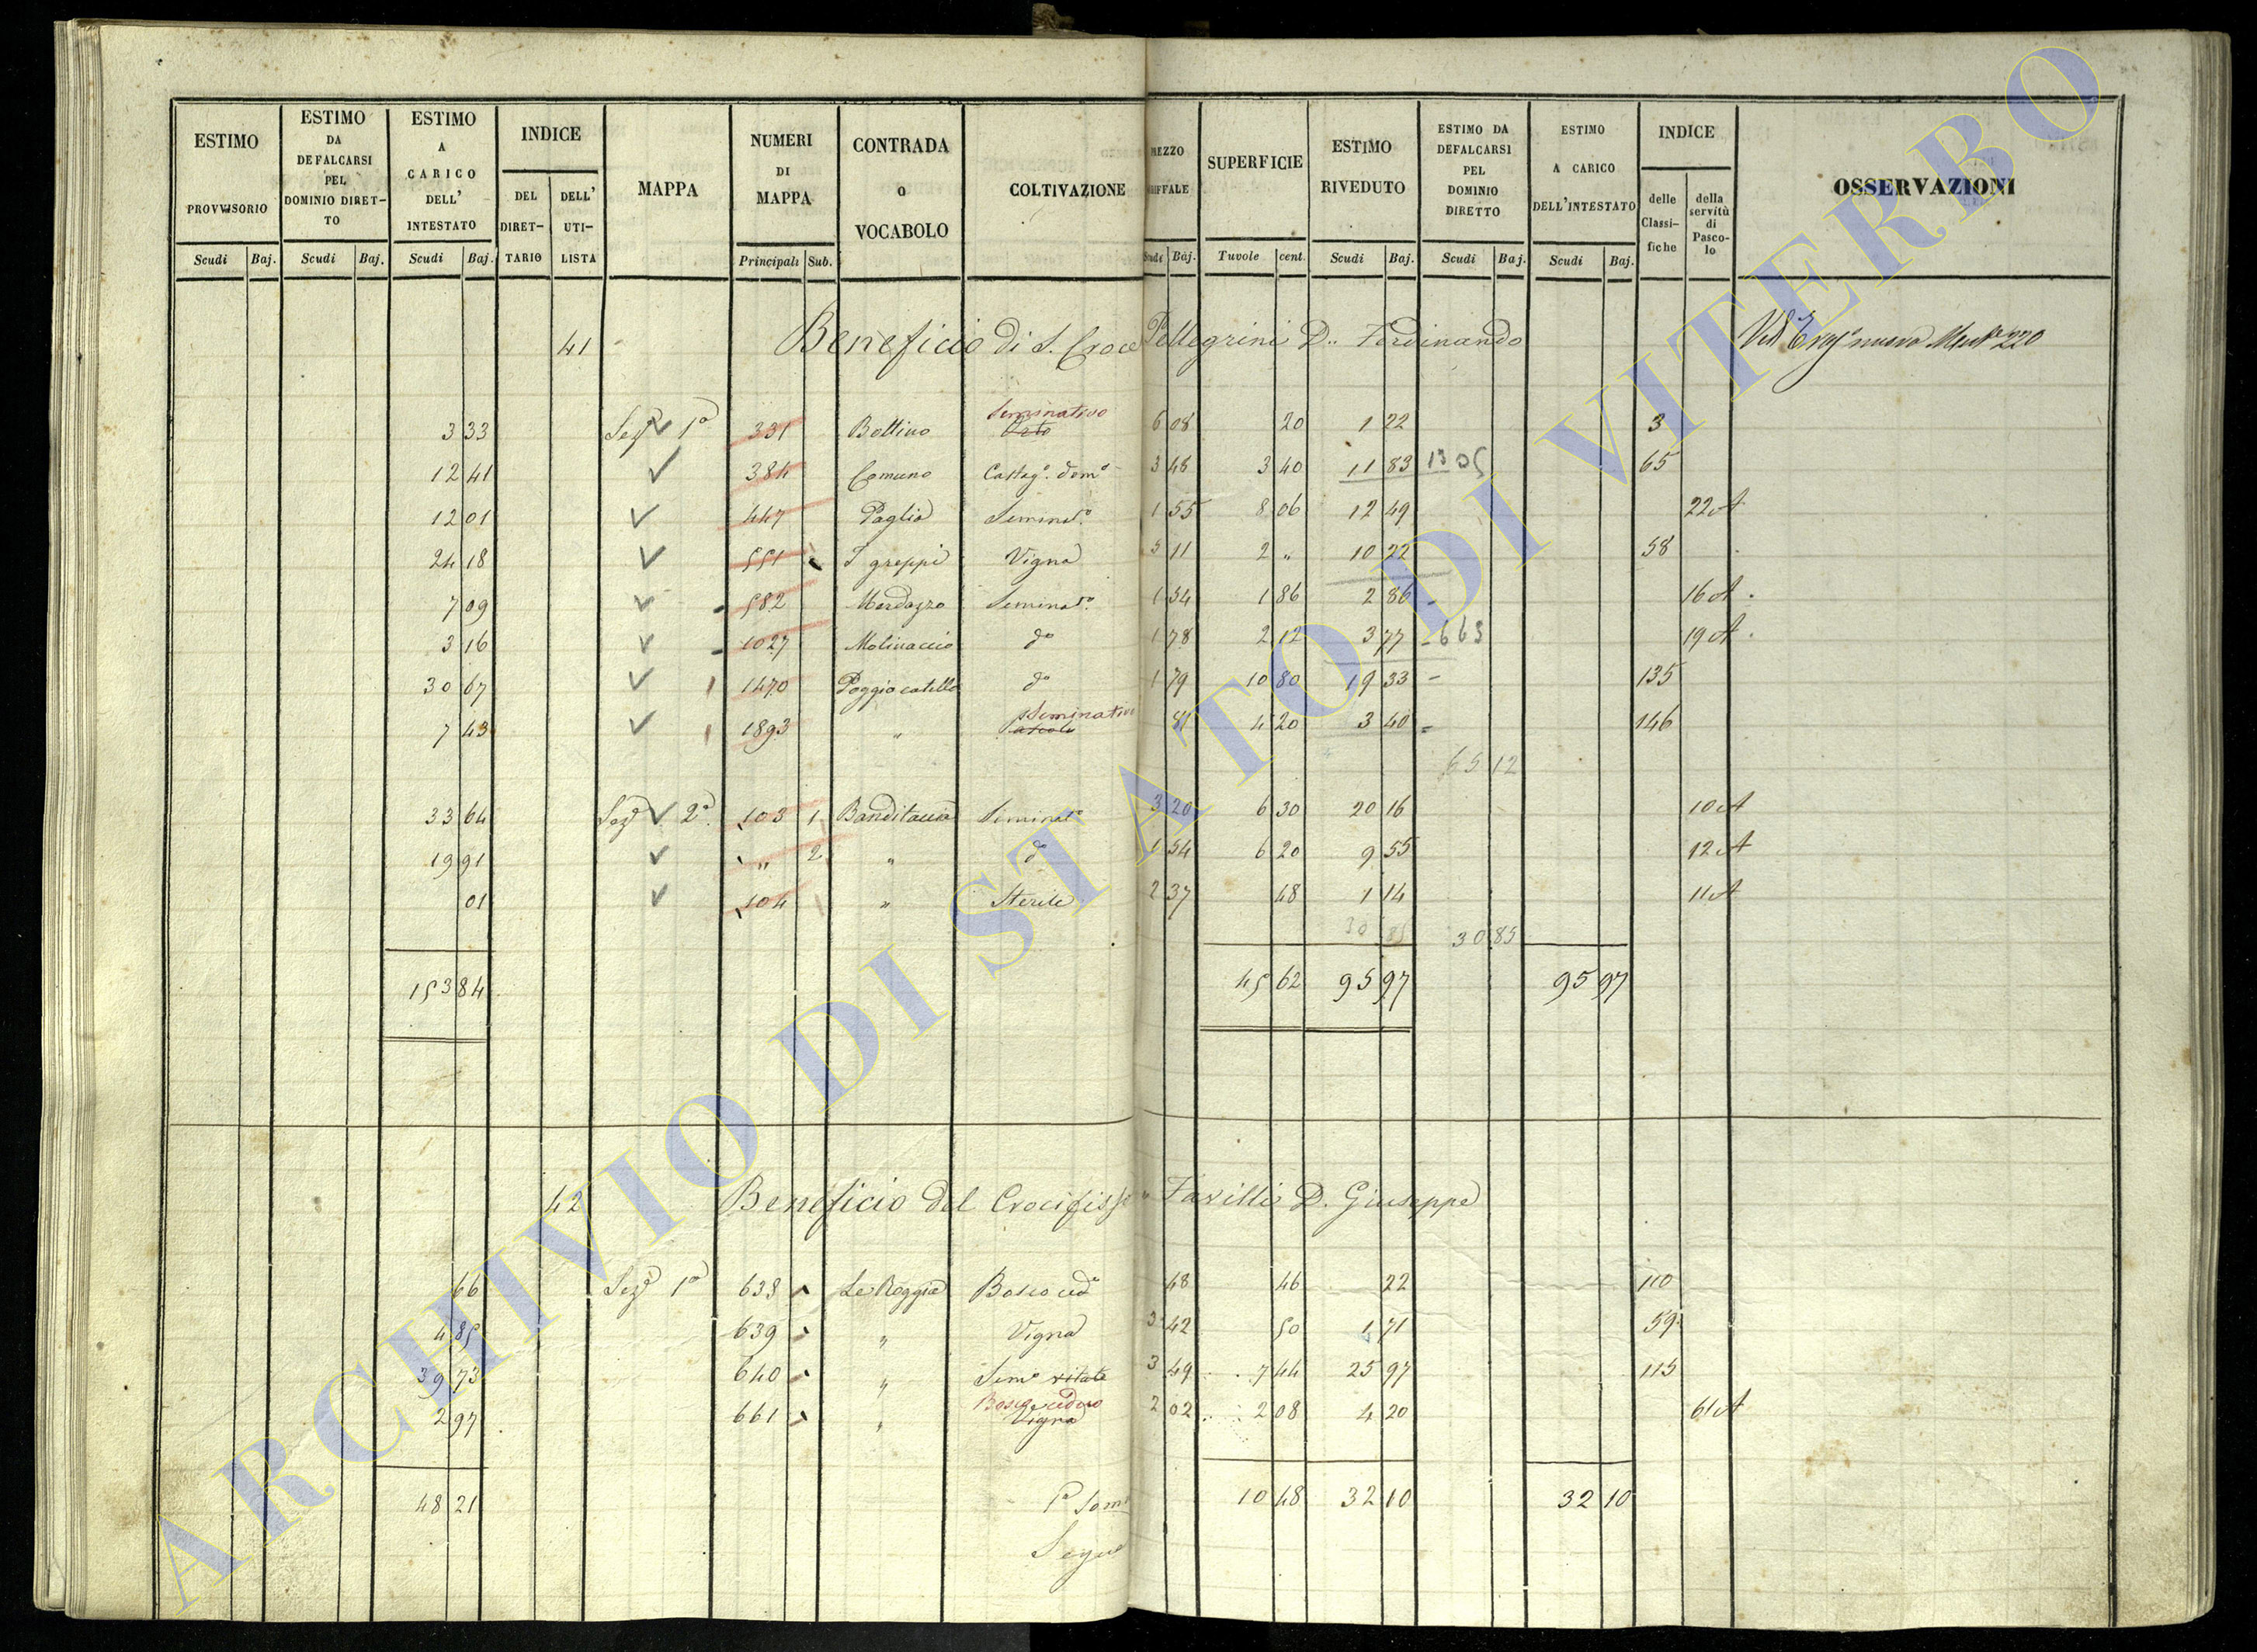 ESTIMO PROVVISORIO
ESTIMO DA DEFALCARSI PEL DOMINIO DIRET-TO
ESTIMO A CARICO DELL' INTESTATO
INDICE
DEL DIRET-TARIO
DELL' UTI-LISTA
MAPPA
NUMERI DI MAPPA
CONTRADA o VOCABOLO
COLTIVAZIONE
SUPERFICIE
ESTIMO RIVEDUTO
ESTIMO DA DEFALCARSI PEL DOMINIO DIRETTO
ESTIMO A CARICO DELL'INTESTATO
INDICE
delle Classi-fiche
della servitù di Pasco-lo
OSSERVAZIONI
Scudi Baj. Scudi Baj. Scudi Baj. Principali Sub. Baj. Tavole cent. Scudi Baj. Scudi Baj. Scudi Baj.
41 Beneficio di S. Croce Pellegrini D. Ferdinando
nuova 220
Seminativo
3 33 Sez.e 1a 331 Bottino Orto 6 08 20 1 22 3
12 41 384 Comune Castag.o dom.o 3 48 3 40 11 83 13 05 65
12 01 447 Paglia Seminat.o 1 55 8 06 12 49 22 A
24 18 551 I greppi Vigna 5 11 2 „ 10 22 58
7 09 582 Merdazzo Seminat.o 1 54 1 86 2 86 16 A
3 16 1027 Molinaccio do 1 78 2 12 3 77 6 63 19 A
30 67 1470 Poggio catello do 1 79 10 80 19 33 135
Seminativo
7 43 1893 „ Pascolo 81 4 20 3 40 146
65 12
33 64 Sez.e 2a 103 1 Banditaccia Seminat.o 3 20 6 30 20 16 10 A
19 91 „ 2 „ do 1 54 6 20 9 55 12 A
01 104 „ Sterile 2 37 48 1 14 11 A
30 85 30 85
153 84 45 62 95 97 95 97
42 Beneficio del Crocifisso „ Favilli D. Giuseppe
66 Sez.e 1a 638 Le Roggie Bosco ced.o 48 46 22 110
4 85 639 „ Vigna 3 42 50 1 71 59
39 73 640 „ Sem.o vitato 3 49 7 44 25 97 115
Bosco ceduo
2 97 661 „ Vigna 2 02 2 08 4 20 61 A
48 21 10 48 32 10 32 10
Segue
ARCHIVIO DI STATO DI VITERBO